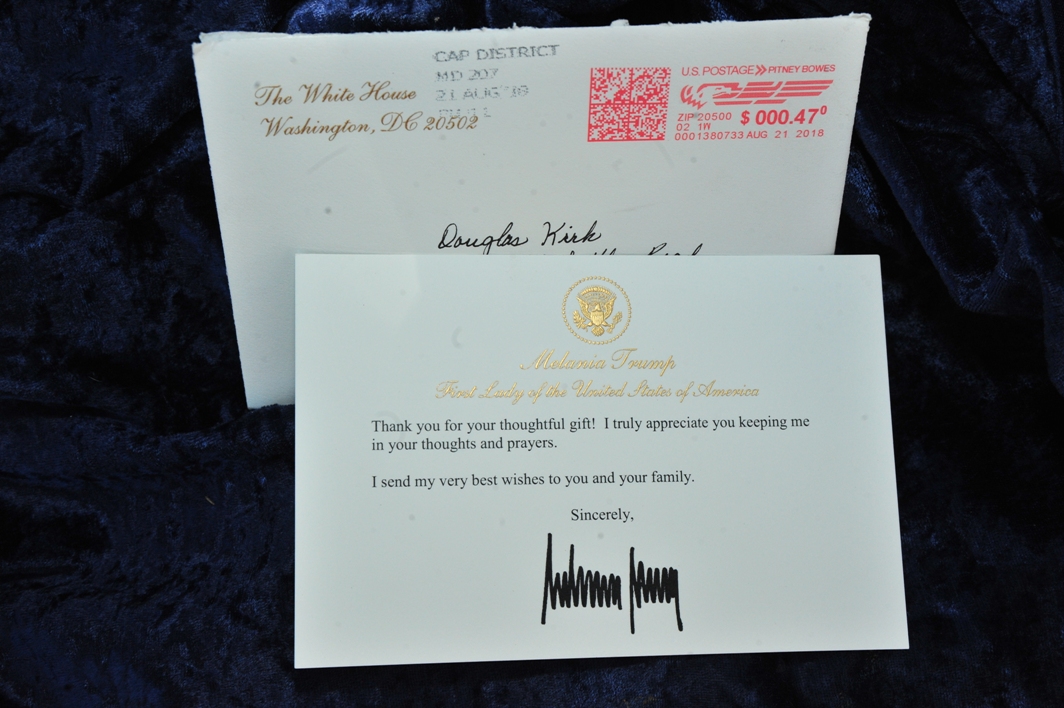 CAP DISTRICT
MD 207
21 AUG '18
The White House
Washington, DC 20502
U.S. POSTAGE PITNEY BOWES
ZIP 20500 $ 000.47⁰
02 1W
0001380733 AUG 21 2018
Douglas Kirk
Melania Trump
First Lady of the United States of America
Thank you for your thoughtful gift! I truly appreciate you keeping me
in your thoughts and prayers.
I send my very best wishes to you and your family.
Sincerely,